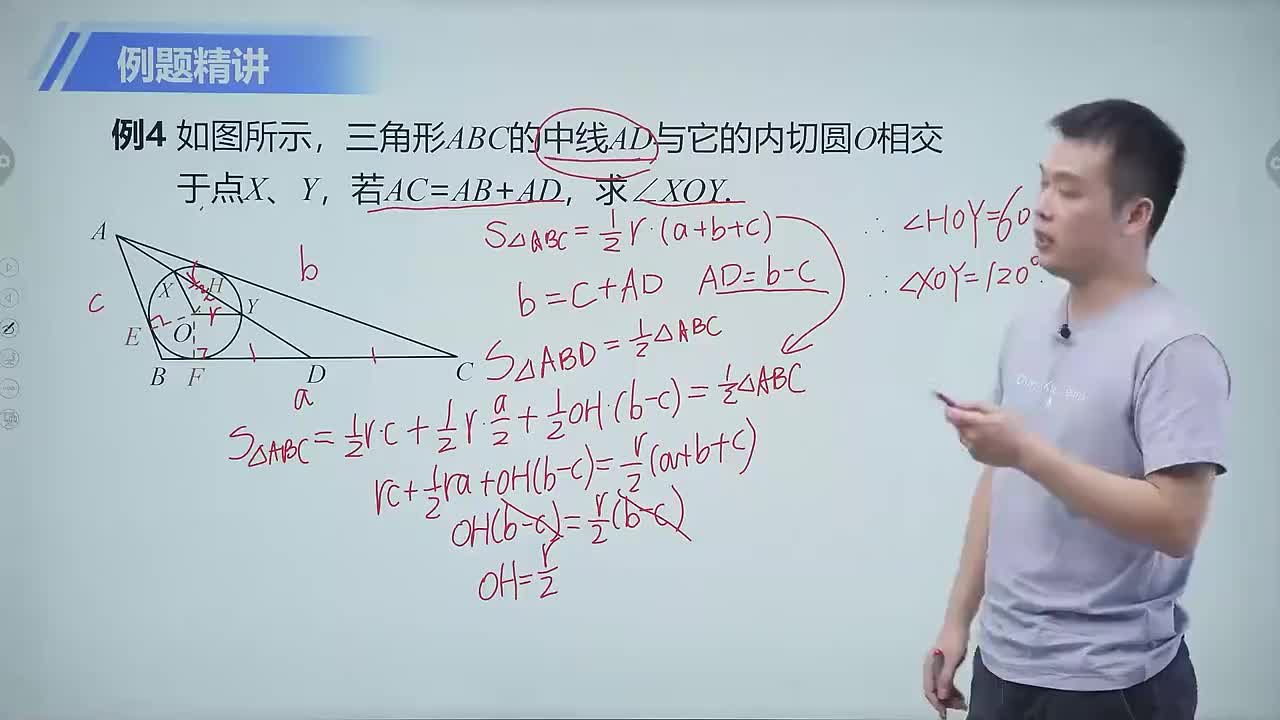 例题精讲
例4 如图所示，三角形ABC的中线AD与它的内切圆O相交
于点X、Y，若AC=AB+AD，求∠XOY.
A
b
c
X
H
Y
r
E
O
B
F
D
C
a
S△ABC=1/2r·(a+b+c)
b=c+AD AD=b-c
S△ABD=1/2△ABC
S△ABC=1/2r·c+1/2r·a/2+1/2OH·(b-c)=1/2△ABC
rc+1/2ra+OH(b-c)=r/2(a+b+c)
OH(b-c)=r/2(b-c)
OH=r/2
∴ ∠HOY=60
∴ ∠XOY=120°.